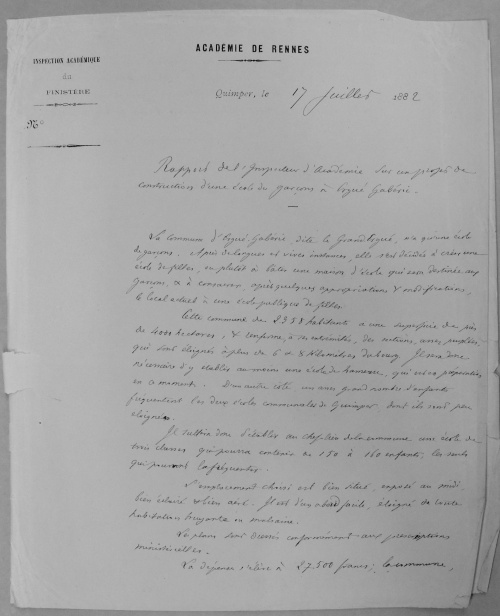 ACADEMIE DE RENNES
INSPECTION ACADÉMIQUE
du
FINISTÈRE
N°
Quimper, le 17 Juillet 1882
Rapport de l'Inspecteur d'Académie sur un projet de
construction d'une école de garçons à Ergué Gabéric.
La commune d'Ergué-Gabéric, dite le Grand Ergué, n'a qu'une école
de garçons. Après de longues et vives instances, elle s'est décidée à créer une
école de filles, ou plutôt à bâtir une maison d'école qui sera destinée aux
garçons, & à conserver, après quelques appropriations & modifications,
le local actuel à une école publique de filles.
Cette commune de 2358 habitants a une superficie de près
de 4000 hectares, & renferme, à ses extrémités, des sections, assez peuplées,
qui sont éloignées à plus de 6 & 8 kilomètres du bourg. Il sera donc
nécessaire d'y établir au moins une école de hameau, qui est en préparation
en ce moment. D'un autre côté un assez grand nombre d'enfants
fréquentent les deux écoles communales de Quimper, dont ils sont peu
éloignés.
Il suffira donc d'établir au chef-lieu de la commune une école de
trois classes qui pourra contenir de 150 à 160 enfants, les seuls
qui pourront la fréquenter.
L'emplacement choisi est bien situé, exposé au midi,
bien éclairé & bien aéré. Il est d'un abord facile, éloigné de toute
habitation bruyante ou malsaine.
Le plans sont dressés conformément aux prescriptions
ministérielles.
La dépense s'élève à 27.500 francs; la commune,